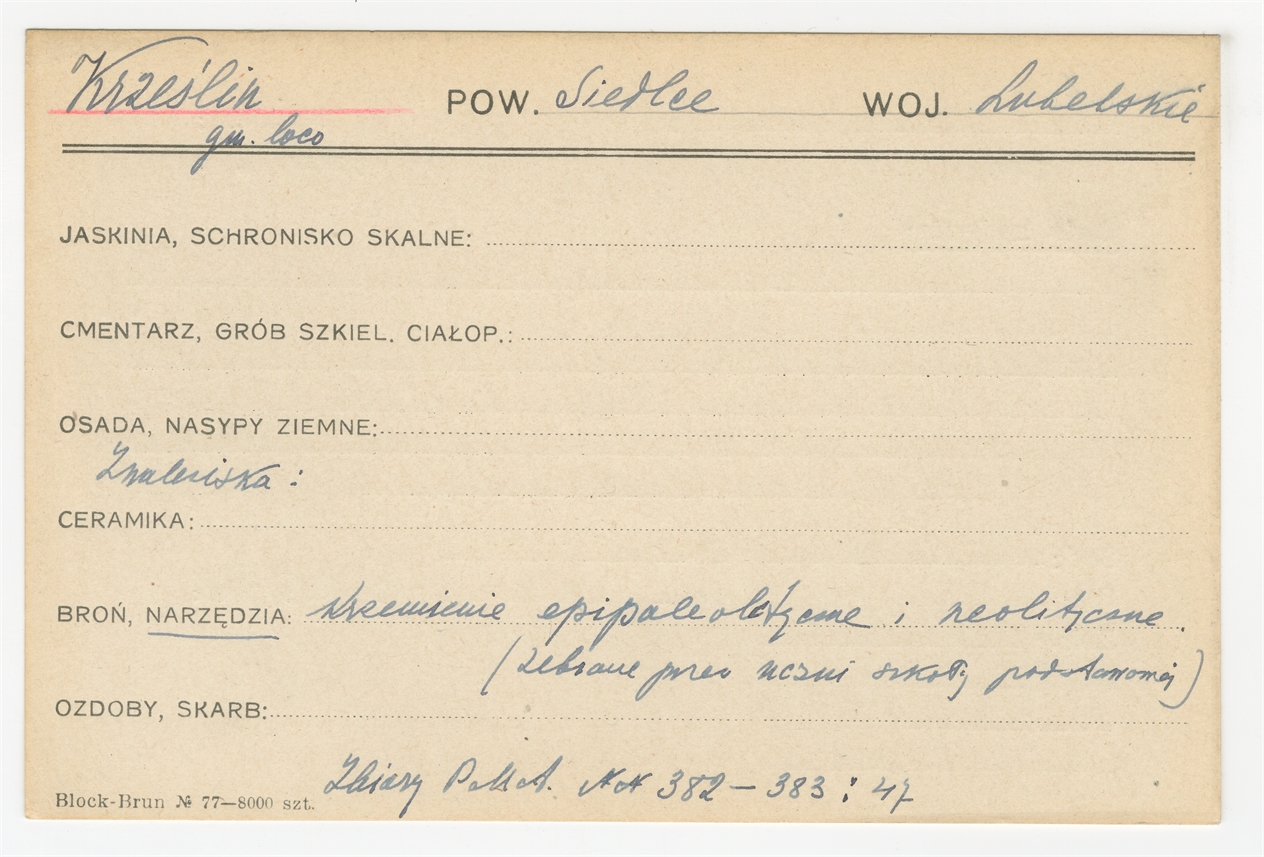 Krześlin POW. Siedlce WOJ. Lubelskie
gm. loco
JASKINIA, SCHRONISKO SKALNE:
CMENTARZ, GRÓB SZKIEL. CIAŁOP.:
OSADA, NASYPY ZIEMNE:
Znaleziska :
CERAMIKA:
BROŃ, NARZĘDZIA: krzemienie epipaleolityczne i neolityczne.
(zebrane przez uczni szkoły podstawowej)
OZDOBY, SKARB:
Zbiory P.M.A. NN 382 – 383 : 47
Block-Brun № 77—8000 szt.